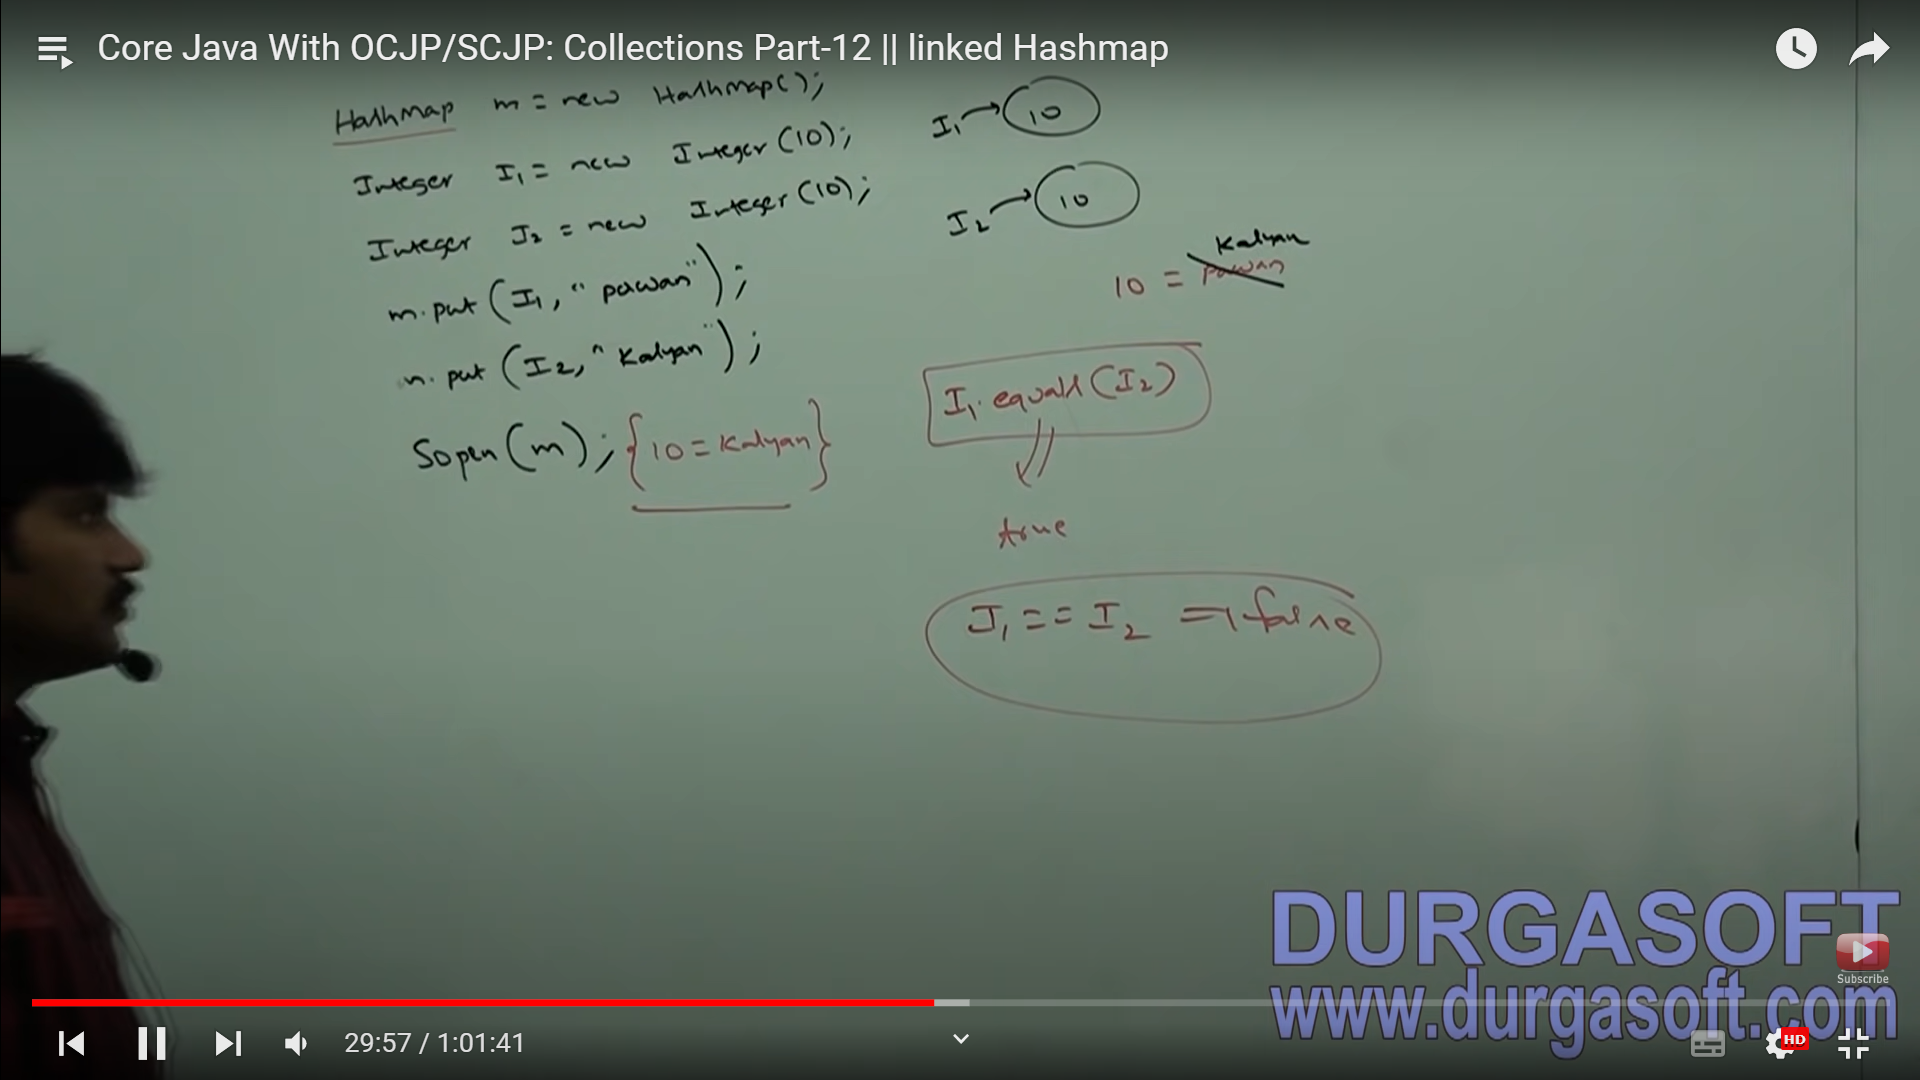 Core Java With OCJP/SCJP: Collections Part-12 || linked Hashmap
HashMap m = new HashMap();
Integer I1 = new Integer(10);
Integer I2 = new Integer(10);
m.put(I1, "pawan");
m.put(I2, "Kalyan");
Sopln(m); {10=Kalyan}
I1 → 10
I2 → 10
Kalyan
10 = pawan
I1.equals(I2)
true
I1 == I2 ⇒ false
DURGASOFT
www.durgasoft.com
Subscribe
29:57 / 1:01:41
HD